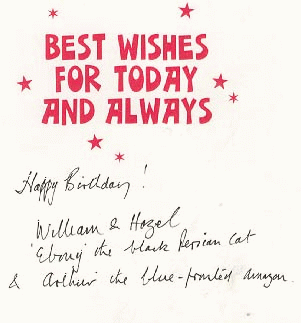 BEST WISHES
FOR TODAY
AND ALWAYS
Happy Birthday!
William & Hazel
'Ebony' the black Persian cat
& Arthur the blue-fronted amazon.